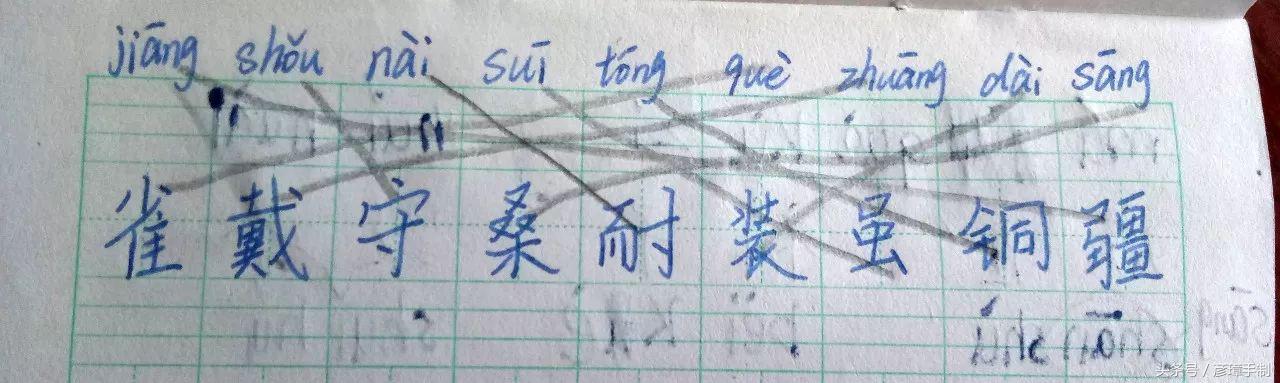 jiāng shǒu nài suī tóng què zhuāng dài sāng
雀 戴 守 桑 耐 装 虽 铜 疆
头条号 / 彦璋手制